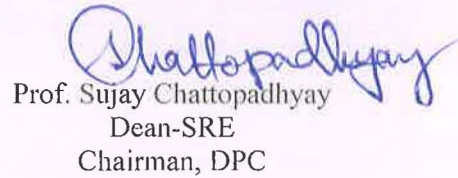 Chattopadhyay
Prof. Sujay Chattopadhyay
Dean-SRE
Chairman, DPC